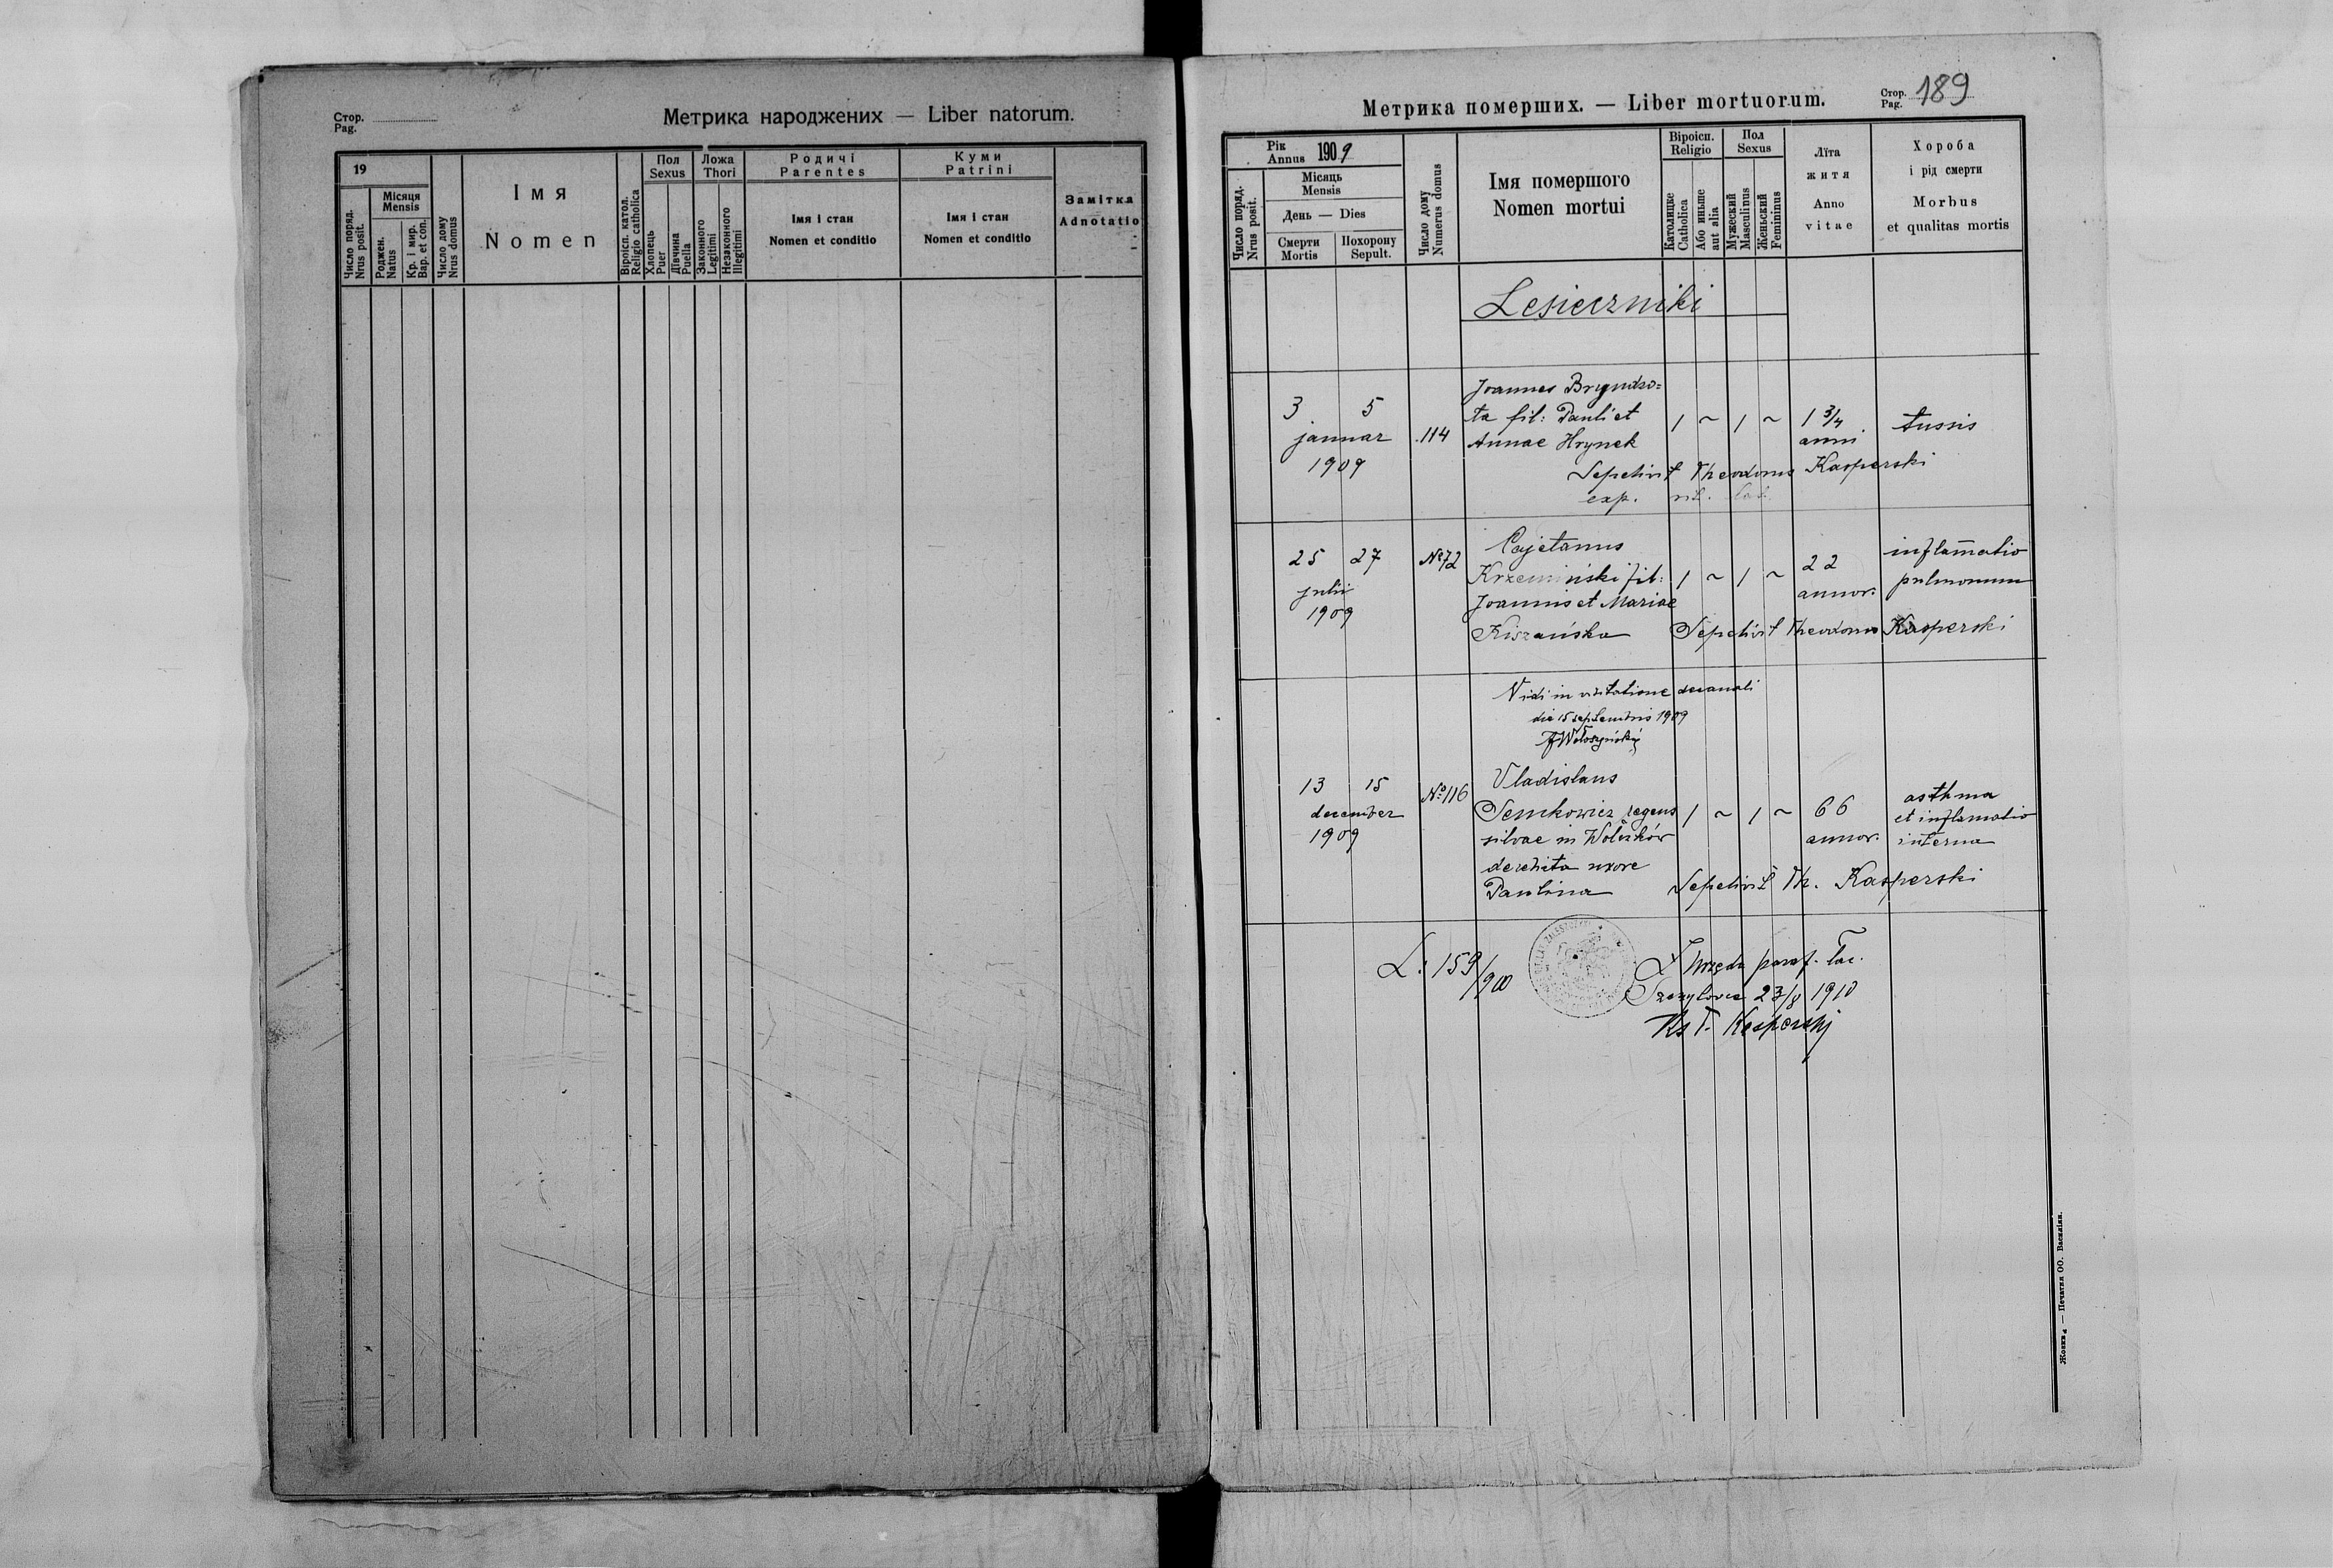 Стор.
Pag.
Метрика народжених — Liber natorum.
19
Число поряд.
Nrus posit.
Місяця
Mensis
Роджен.
Natus
Кр. і мир.
Bap. et con.
Число дому
Nrus domus
Імя
Nomen
Віроісп. катол.
Religio catholica
Пол
Sexus
Хлопець
Puer
Дівчина
Puella
Ложа
Thori
Законного
Legitimi
Незаконного
Illegitimi
Родичі
Parentes
Імя і стан
Nomen et conditio
Куми
Patrini
Імя і стан
Nomen et conditio
Замітка
Adnotatio
Метрика померших. — Liber mortuorum.
Стор.
Pag. 189
Рік
Annus 1909
Число поряд.
Nrus posit.
Місяць
Mensis
День — Dies
Смерти
Mortis
Похорону
Sepult.
Число дому
Numerus domus
Імя помершого
Nomen mortui
Віроісп.
Religio
Католицке
Catholica
Або иньше
aut alia
Пол
Sexus
Мужеский
Masculinus
Женьский
Femininus
Лїта
житя
Anno
vitae
Хороба
і рід смерти
Morbus
et qualitas mortis
Lesieczniki
3 5
januar
1909
114
Joannes Bryndzo=
ta fil: Pauli et
Annae Hrynek
1 ~ 1 ~
1 3/4
anni
tussis
Sepelivit Theodorus Kasperski
exp. rit. lat.
25 27
julii
1909
No 72
Cajetanus
Krzemiński fil:
Joannis et Mariae
Kiszańska
1 ~ 1 ~
22
annor.
inflam̅atio
pulmonum
Sepelivit Theodorus Kasperski
Vidi in visitatione decanali
die 15 septembris 1909
13 15
december
1909
No 116
Vladislaus
Semkowicz regens
silvae in
derelicta uxore
Paulina
1 ~ 1 ~
66
annor.
asthma
et inflamatio
interna
Sepelivit Th. Kasperski
L: 159/910
Z Urzędu paraf. łac.
23/8 1910
Ks T. Kasperski
Жовква — Печатня ОО. Василіян.